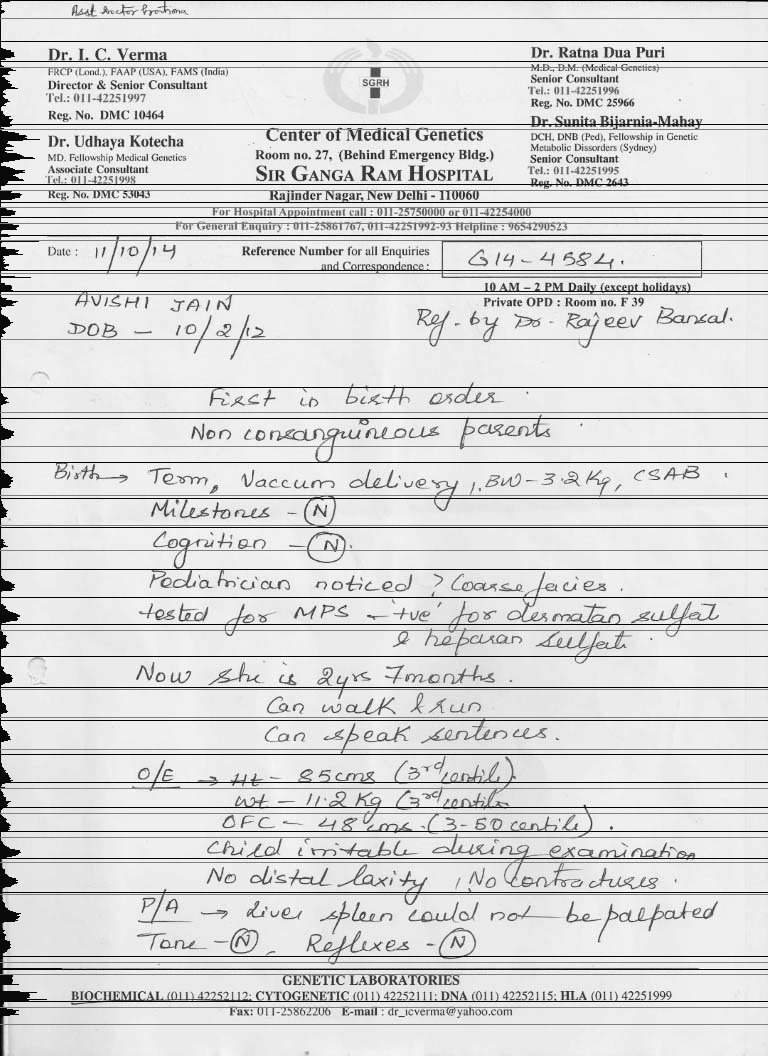 Dr. I. C. Verma
FRCP (Lond.), FAAP (USA), FAMS (India)
Director & Senior Consultant
Tel.: 011-42251997
Reg. No. DMC 10464
Dr. Udhaya Kotecha
MD. Fellowship Medical Genetics
Associate Consultant
Tel.: 011-42251998
Reg. No. DMC 53043
SGRH
Center of Medical Genetics
Room no. 27, (Behind Emergency Bldg.)
SIR GANGA RAM HOSPITAL
Rajinder Nagar, New Delhi - 110060
Dr. Ratna Dua Puri
M.D., D.M. (Medical Genetics)
Senior Consultant
Tel.: 011-42251996
Reg. No. DMC 25966
Dr. Sunita Bijarnia-Mahay
DCH, DNB (Ped), Fellowship in Genetic
Metabolic Dissorders (Sydney)
Senior Consultant
Tel.: 011-42251995
Reg. No. DMC 2643
For Hospital Appointment call : 011-25750000 or 011-42254000
For General Enquiry : 011-25861767, 011-42251992-93 Helpline : 9654290523
Date : 11/10/14
Reference Number for all Enquiries
and Correspondence :
G14-4584.
10 AM – 2 PM Daily (except holidays)
Private OPD : Room no. F 39
AVISHI JAIN
DOB – 10/2/12
Ref. by Dr. Rajeev Bansal.
First in birth order.
Non consanguineous parents.
Birth → Term, Vaccum delivery, BW – 3.2 Kg, CSAB.
Milestones – N
Cognition – N.
Pediatrician noticed ? Coarse facies.
tested for MPS – '+ve' for dermatan sulfat
& heparan sulfat.
Now she is 2yrs 7months.
Can walk & run
Can speak sentences.
O/E → Ht – 85cms (3rd centile).
Wt – 11.2 Kg (3rd centile
OFC – 48 cms. (3-50 centile).
Child irritable during examination
No distal laxity, No contractures.
P/A → Liver spleen could not be palpated
Tone – N, Reflexes – N
GENETIC LABORATORIES
BIOCHEMICAL (011) 42252112; CYTOGENETIC (011) 42252111; DNA (011) 42252115; HLA (011) 42251999
Fax: 011-25862206 E-mail : dr_icverma@yahoo.com